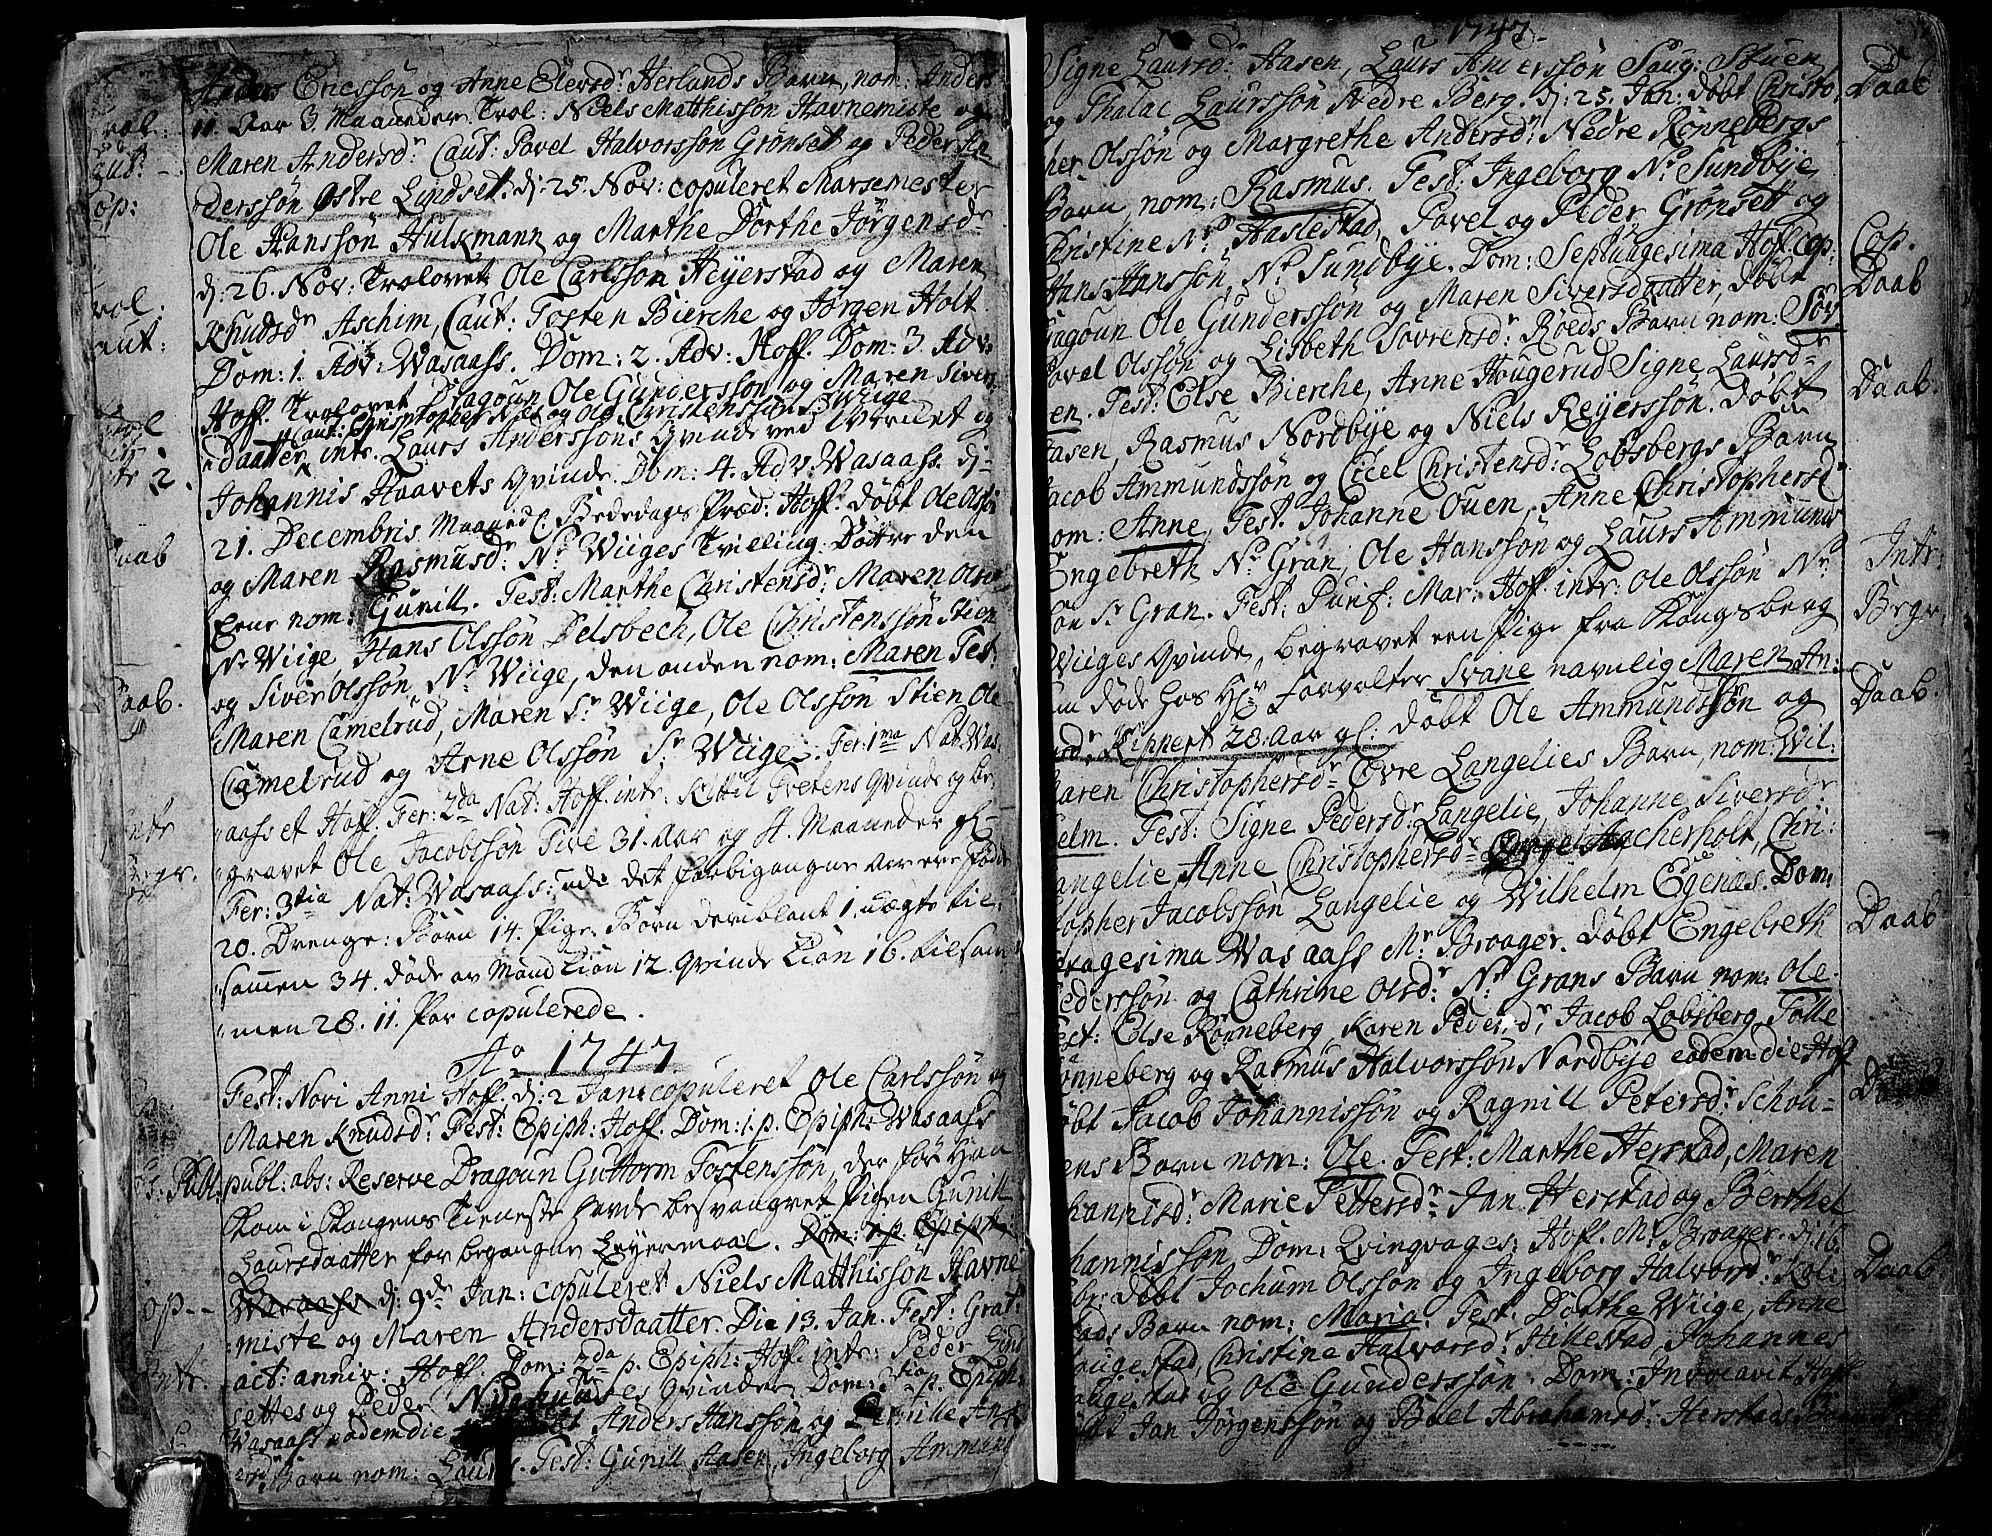 Anders Ericssøn og Anne Elevsdr Herlands Barn, nom: Anders
11 Aar 3. Maaneder. Trol: Niels Matthissøn Havnemiste og
Maren Andersdr: Caut: Pavel Halvorssøn Grønset og Peder An
derssøn Østre Lindset. d: 25. Nov: copuleret Marsemester
Ole Hanssøn Hulkmann og Marthe Dorthe Jørgensdr
d: 26. Nov: Trolovet Ole Carlssøn Heyerstad og Maren
Knudsdr Aschim, Caut: Tosten Bierche og Jørgen Holt.
Dom: 1. Adv: Wasaass. Dom: 2. Adv: Hoff. Dom: 3. Adv:
Hoff. Trolovet Dragoun Ole Gunderssøn og Maren Sivers
Caut: Christopher og Ole Christenssøn Wiige
daatter, intr. Laurs Anderssøns Qvinde ved Værket og
Johannis Haavets Qvinde. Dom: 4. Adv. Wasaass. d:
21. Decembris Maaned. Bededags Præd: Hoff. døbt Ole Olssøn
og Maren Rasmusdr Nr Wiiges Tvilling: Døttre den
Eene nom: Gunill. Test: Marthe Christensdr: Maren Olsdr
Nr Wiige, Hans Olssøn Delsbech, Ole Christenssøn Stien
og Siver Olssøn, Nr Wiige, den anden nom: Maren Test:
Maren Camelrud, Maren Sr Wiige, Ole Olssøn Stien Ole
Camelrud og Arne Olssøn Sr Wiige. Fer: 1ma Nat: Was
aass et Hoff. Fer: 2da Nat: Hoff. intr: Kittil Tvetens Qvinde og be
gravet Ole Jacobssøn Five 31. Aar og 4. Maaneder gl:
Fer: 3tia Nat: Wasaass: udi det forbigangne Aar ere fødde
20. Drenge: Børn 14. Pige: Børn deriblant 1. uægte til
sammen 34. døde av Mand Kiøn 12. Qvinde Kiøn 16. tilsam
men 28. 11. Par copulerede.
Ao 1747
Fest: Novi Anni Hoff. d: 2 Jan: copuleret Ole Carlssøn og
Maren Knudsdr: Fest: Epiph: Hoff. Dom: 1. p. Epiph: Wasaass
publ: abs: Reserve Dragoun Guttorm Tostenssøn, der før han
kom i Kongens Tieneste havde besvangret Pigen Gunill
Laursdaatter for begangne Leyermaal. Dom: 1. p. Epiph:
Wasaass d: 9de Jan: copuleret Niels Matthissøn Havne
miste og Maren Andersdaatter. Die 13. Jan. Fest: Grat:
act: anniv: Hoff. Dom: 2da p. Epiph: Hoff. intr: Peder Lind
settes og Peder Qvinder. Dom: 3tia p. Epiph:
Wasaass eodem die Anders Hanssøn og Pernille An
Barn nom: Laurs. Test: Gunill Aasen, Ingeborg Ammund
Cop:
Trol
Daab
Daab.
Begr.
Publ:
Intr.
1747.
Signe Laursdr: Aasen, Laurs Anderssøn Saug: Stuen
og Thalac Laurssøn Nedre Berg. d: 25. Jan: døbt Christo
pher Olssøn og Margrethe Andersdr: Nedre Rønnebergs
Barn, nom: Rasmus. Test: Ingeborg Nr Sundbye,
Christine Nr Haslestad, Pavel og Peder Grønsett og
Hans Hanssøn, Nr Sundbye. Dom: Septuagesima Hoff. cop:
Dragoun Ole Gunderssøn og Maren Siversdaatter, døbt
Pavel Olssøn og Lisbeth Sørensdr: Røeds Barn nom: Sør
en. Test: Else Bierche, Anne Haugerud Signe Laursdr
Aasen, Rasmus Nordbye og Niels Reyerssøn. døbt
Jacob Ammundssøn og Cicel Christensdr: Løbsbergs Barn
nom: Anne, Test. Johanne Ouen, Anne Christophersdr
Engebreth Nr Gran, Ole Hanssøn og Laurs Ammunds
søn Sr Gran. Fest: Purif: Mar: Hoff. intr: Ole Olssøn Nr
Wiiges Qvinde, begravet een Pige fra Kongsberg
døde hos Hr Forvalter Svane navnlig Maren An:
Kippert 28. Aar gl: døbt Ole Ammundssøn og
Maren Christophersdr: Øvre Langelies Barn, nom: Wil:
helm. Test: Signe Pedersdr: Langelie, Johanne Siversdr:
Langelie, Anne Christophersdr Aacherholt, Chri:
stopher Jacobssøn Langelie og Wilhelm Egenæs. Dom:
Sexagesima Wasaass Mr. Broager. døbt Engebreth
Pederssøn og Cathrine Olsdr: Nr Grans Barn nom: Ole.
Test: Else Rønneberg, Karen Pedersdr, Jacob Løbsberg, Tolle
Rønneberg og Rasmus Halvorssøn Nordbye eodem die Hoff.
døbt Jacob Johannissøn og Ragnill Petersdr: Schou
ens Barn nom: Ole. Test: Marthe Herstad, Maren
Johannisdr: Marie Pettersdr: Jan Herstad og Berthel
Johannissøn Dom: Qvinqvages: Hoff. Mr: Broager. d: 16.
Febr: døbt Jochum Olssøn og Ingeborg Halvorsdr: Kol:
stads Barn nom: Maria. Test: Dorthe Wiige, Anne
Haugestad, Christine Halvorsdr: Hillestad, Johannes
Haugestad og Ole Gunderssøn. Dom: Invocavit Hoff
døbt Jan Jørgenssøn og Buel Abrahamsdr: Herstads Barn
Daab
Cop.
Daab
Daab.
Intr:
Begr.
Daab.
Daab
Daab
Daab